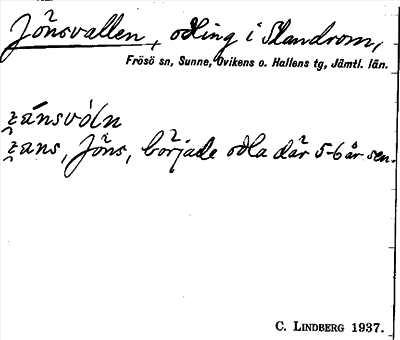 Jönsvallen, odling i Slandrom,
Frösö sn, Sunne, Ovikens o. Hallens tg, Jämtl. län.
Jöns, började odla där 5-6 år sen.
C. LINDBERG 1937.